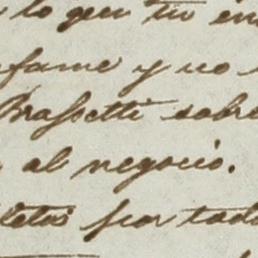 lo que tu
fame y no
Brassetti sobre
al negocio.
letas por todo